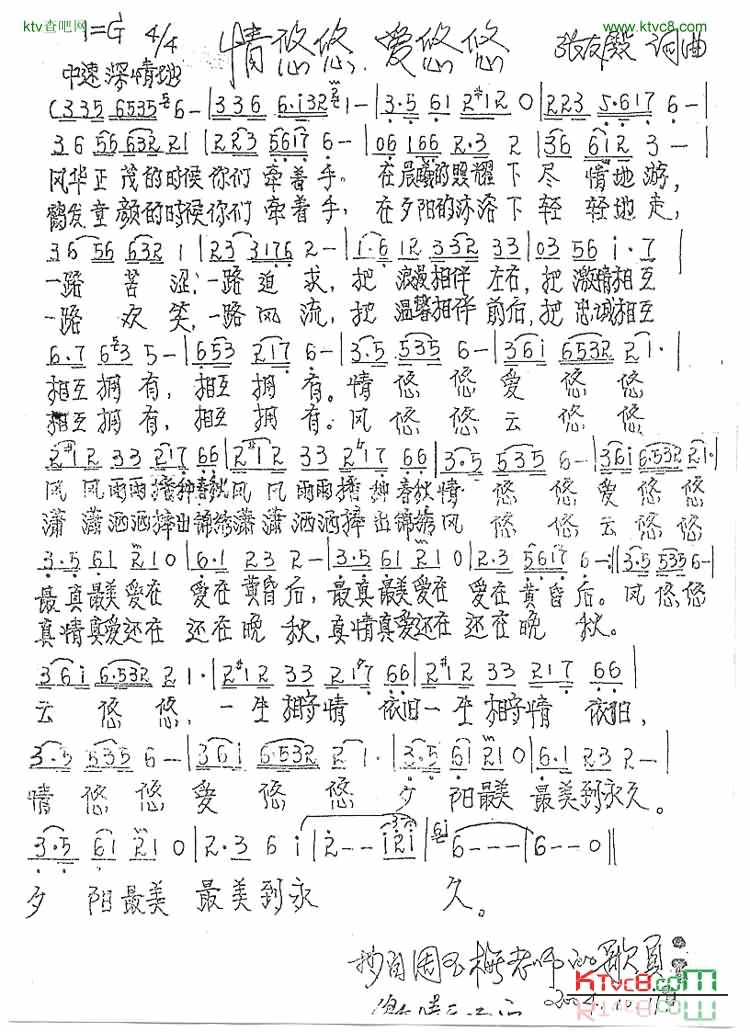 ktv查吧网
www.ktvc8.com
1=G 4/4 情悠悠 爱悠悠 张友殿 词曲
中速 深情地
(335 6535 6-|336 6·i32 1-|3·5 61 2#12 0|223 5·617 6-|
36 56 632 21|223 5617 6-|06 166 2·3 2|36 612 3-|
风华正茂的时候你们牵着手。在晨曦的照耀下尽情地游,
鹤发童颜的时候你们牵着手,在夕阳的沐浴下轻轻地走,
36 56 632 1|23 3176 2-|1·6 12 332 33|03 56 i·7|
一路苦涩,一路追求,把浪漫相伴左右,把激情相互
一路欢笑,一路风流,把温馨相伴前后,把忠诚相互
6·7 653 5-|653 217 6-|3·5 535 6-|36i 6532 21·|
相互拥有,相互拥有。情悠悠爱悠悠
相互拥有,相互拥有。风悠悠云悠悠
2#12 33 217 66|2#12 33 217 66|3·5 535 6-|36i 6·532 21·|
风风雨雨播种春秋风风雨雨播种春秋情悠悠爱悠悠
潇潇洒洒捧出锦绣潇潇洒洒捧出锦绣风悠悠云悠悠
3·5 61 210|6·1 23 2-|3·5 61 210|2·3 5617 6-:‖3·5 535 6-|
最真最美爱在爱在黄昏后,最真最美爱在爱在黄昏后。风悠悠
真情真爱还在还在晚秋,真情真爱还在还在晚秋。
36i 6·532 21·|2#12 33 217 66|2#12 33 217 66|
云悠悠,一生相守情依旧一生相守情依旧,
3·5 535 6-|36i 6532 21·|3·5 61 210|6·1 23 2-|
情悠悠爱悠悠夕阳最美最美到永久。
3·5 61 21 0|2·3 6 i|2--i2i|6---|6--0‖
夕阳最美最美到永久。
抄自周玉梅老师的歌页
KTvc8.com
2004.10.11